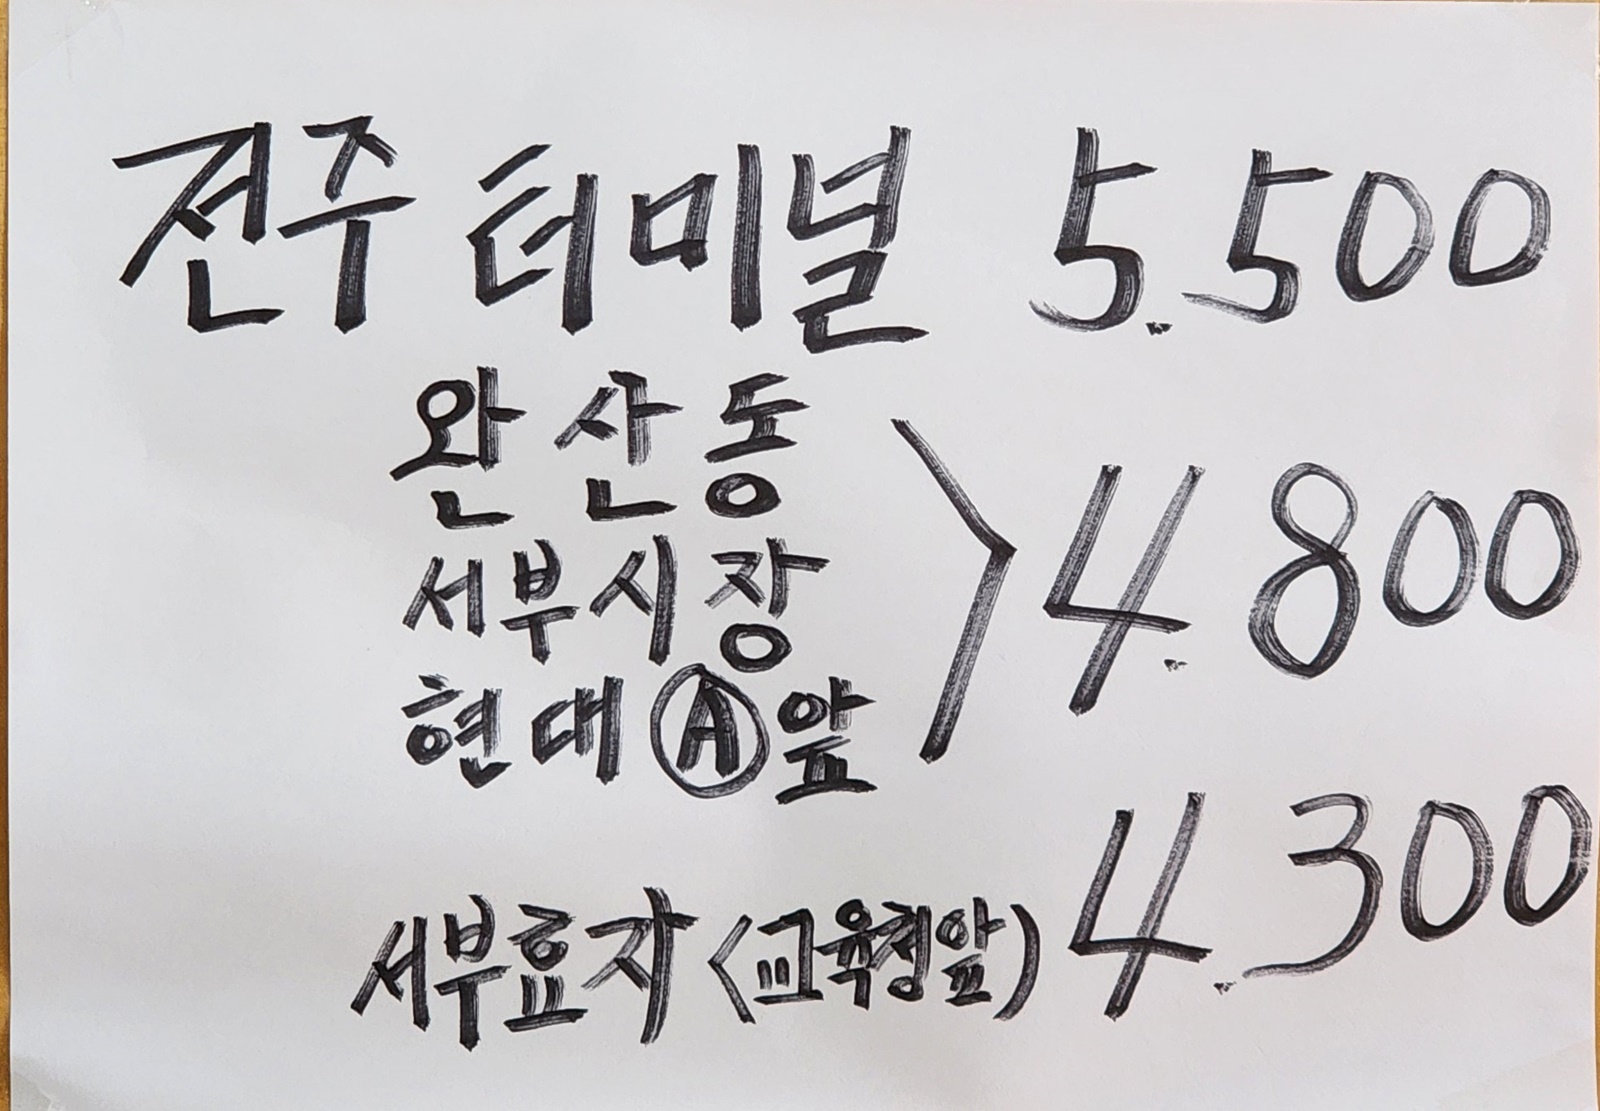 전주 터미널 5.500
완산동
서부시장 > 4.800
현대Ⓐ앞
서부효자 <교육청앞) 4.300